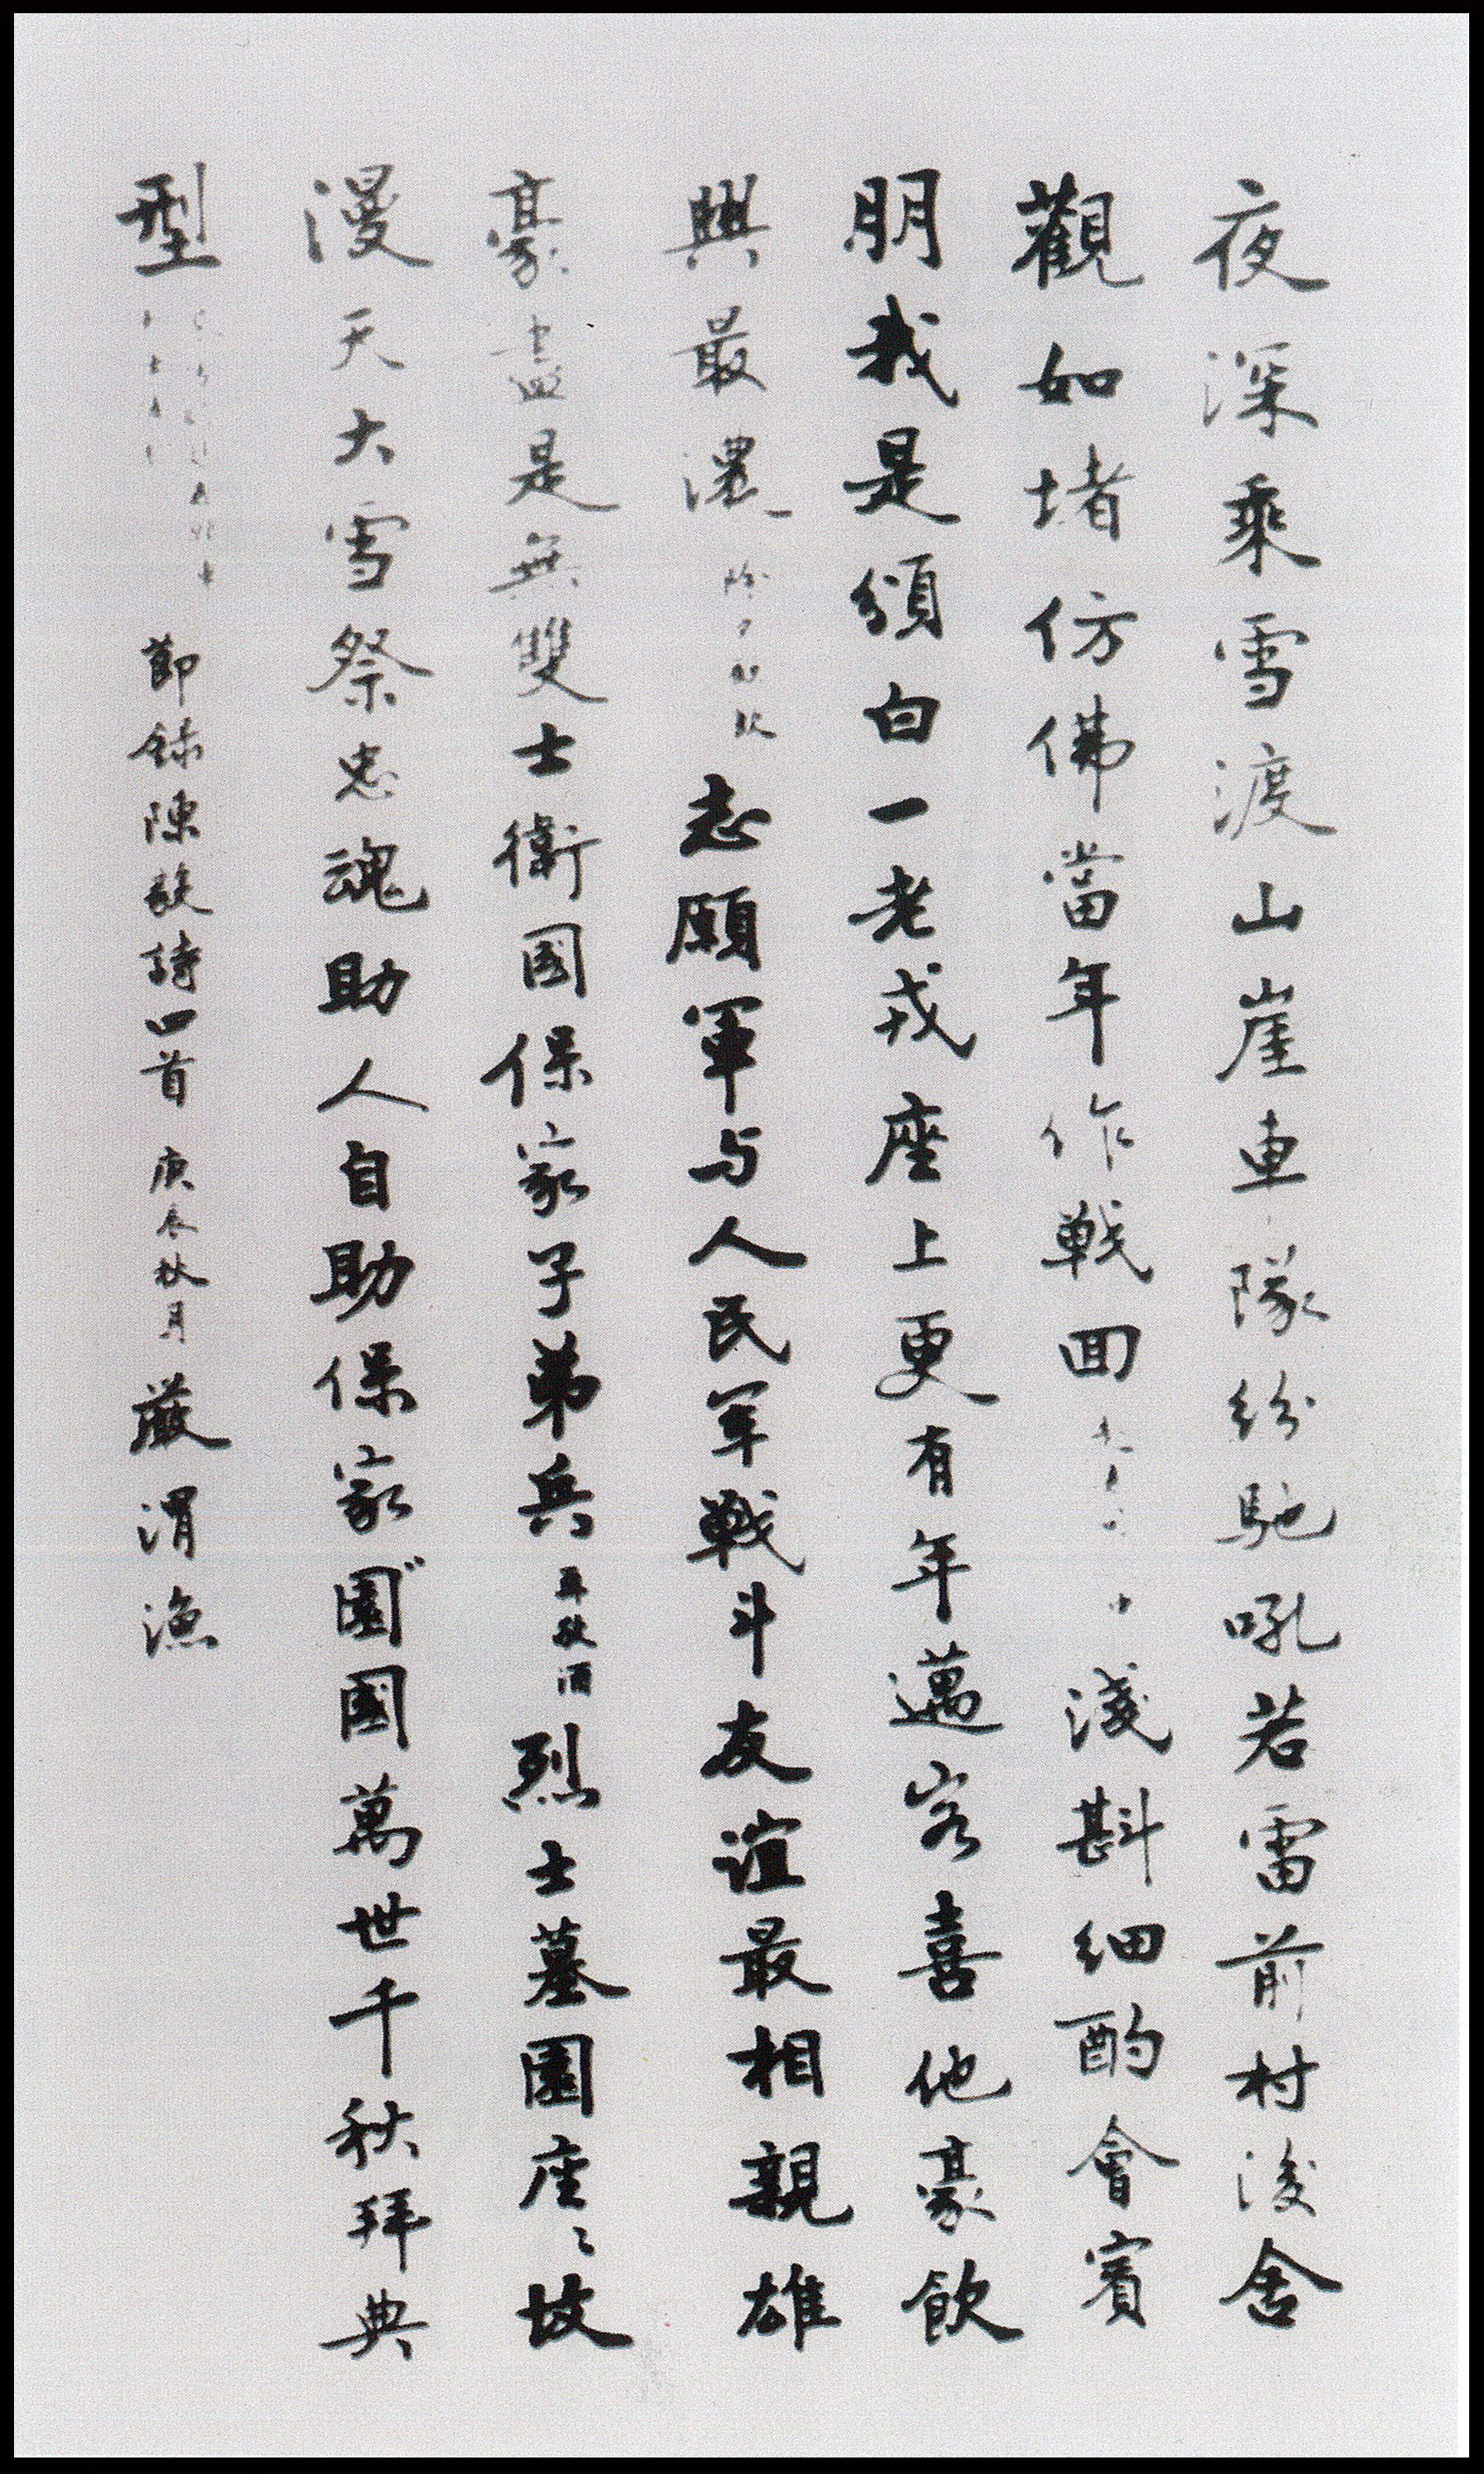 夜深乘雪渡山崖車隊紛馳吼若雷前村後舍
觀如堵仿佛當年作戰回淺斟細酌會賓
朋我是頒白一老戎座上更有年邁客喜他豪飲
興最濃志願軍与人民軍戰斗友誼最相親雄
豪盡是無雙士衛國保家子弟兵烈士墓園座々墳
漫天大雪祭忠魂助人自助保家園國萬世千秋拜典
型節錄陳毅詩四首庚辰秋月嚴渭漁